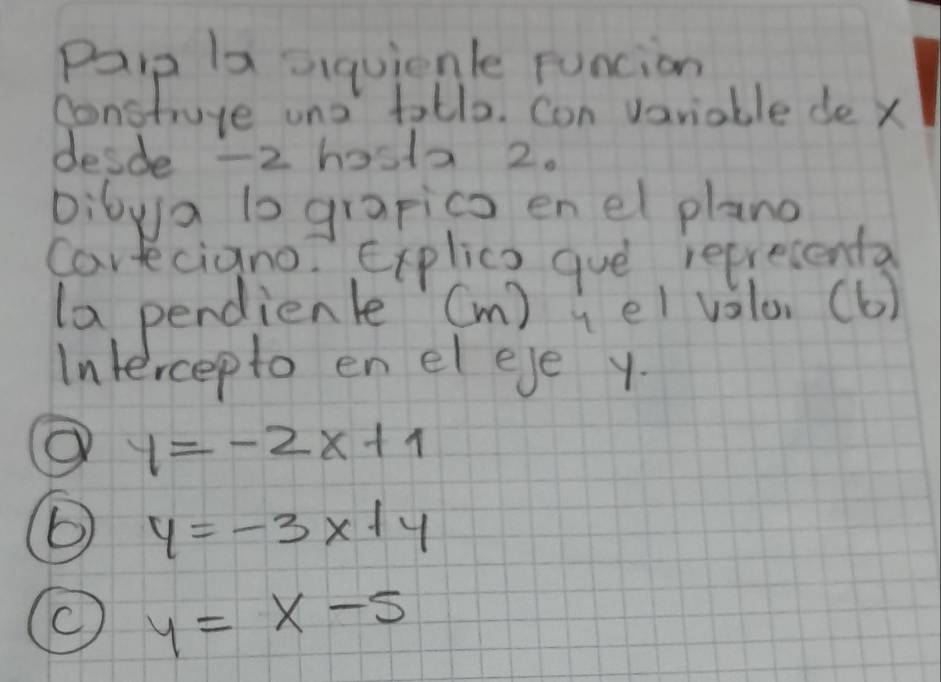 Para la siguiente funcion
construye una tabla. Con variable de x
desde -2 hasta 2.
Dibuja la grafica en el plano
Carteciano. Explica qué representa
la pendiente (m) y el valor (b)
Intercepto en el eje y.
(a) y = -2x + 1
(b) y = -3x + 4
(c) y = x - 5